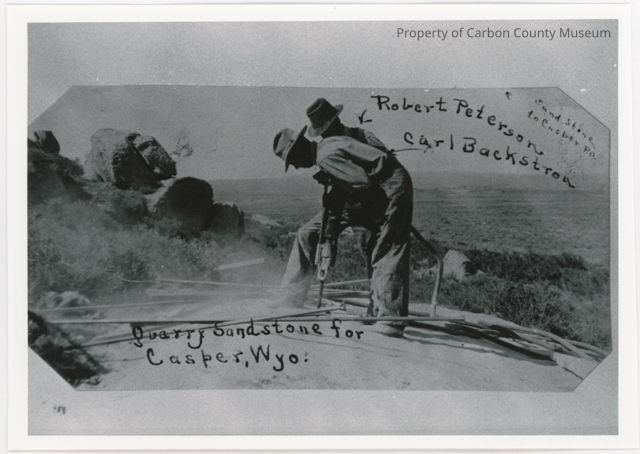 Property of Carbon County Museum
Robert Peterson
Carl Backstrom
Sand Stone
to Casper P.O.
Quarry Sandstone for
Casper, Wyo: